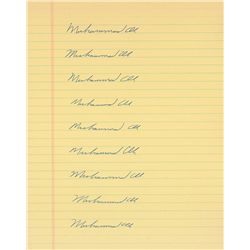 Muhammad Ali
Muhammad Ali
Muhammad Ali
Muhammad Ali
Muhammad Ali
Muhammad Ali
Muhammad Ali
Muhammad Ali
Muhammad Ali